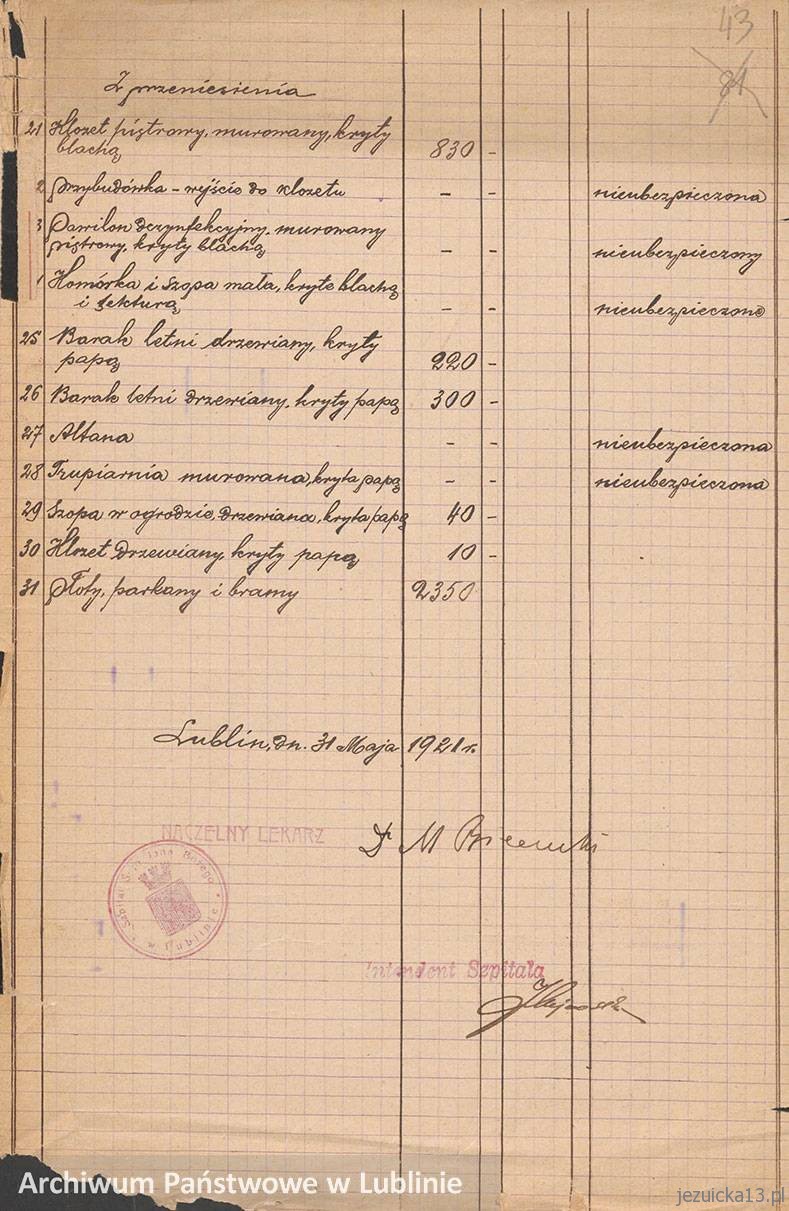 43
81
Z przeniesienia
21 Klozet piętrowy, murowany, kryty
blachą 830 -
2 przybudówka - wejście do klozetu - - nieubezpieczona
3 Pawilon dezynfekcyjny, murowany
piętrowy, kryty blachą - - nieubezpieczony
Komórka i szopa mała, kryte blachą
i tekturą - - nieubezpieczone
25 Barak letni drzewiany, kryty
papą 220 -
26 Barak letni drzewiany, kryty papą 300 -
27 Altana - - nieubezpieczona
28 Trupiarnia murowana, kryta papą - - nieubezpieczona
29 Szopa w ogrodzie, drzewiana, kryta papą 40 -
30 Klozet drzewiany, kryty papą 10 -
31 Płoty, parkany i bramy 2350
Lublin, dn. 31 Maja 1921 r.
NACZELNY LEKARZ
Dr M
Szpital Jana Bożego
w Lublinie
Intendent Szpitala
Archiwum Państwowe w Lublinie
jezuicka13.pl